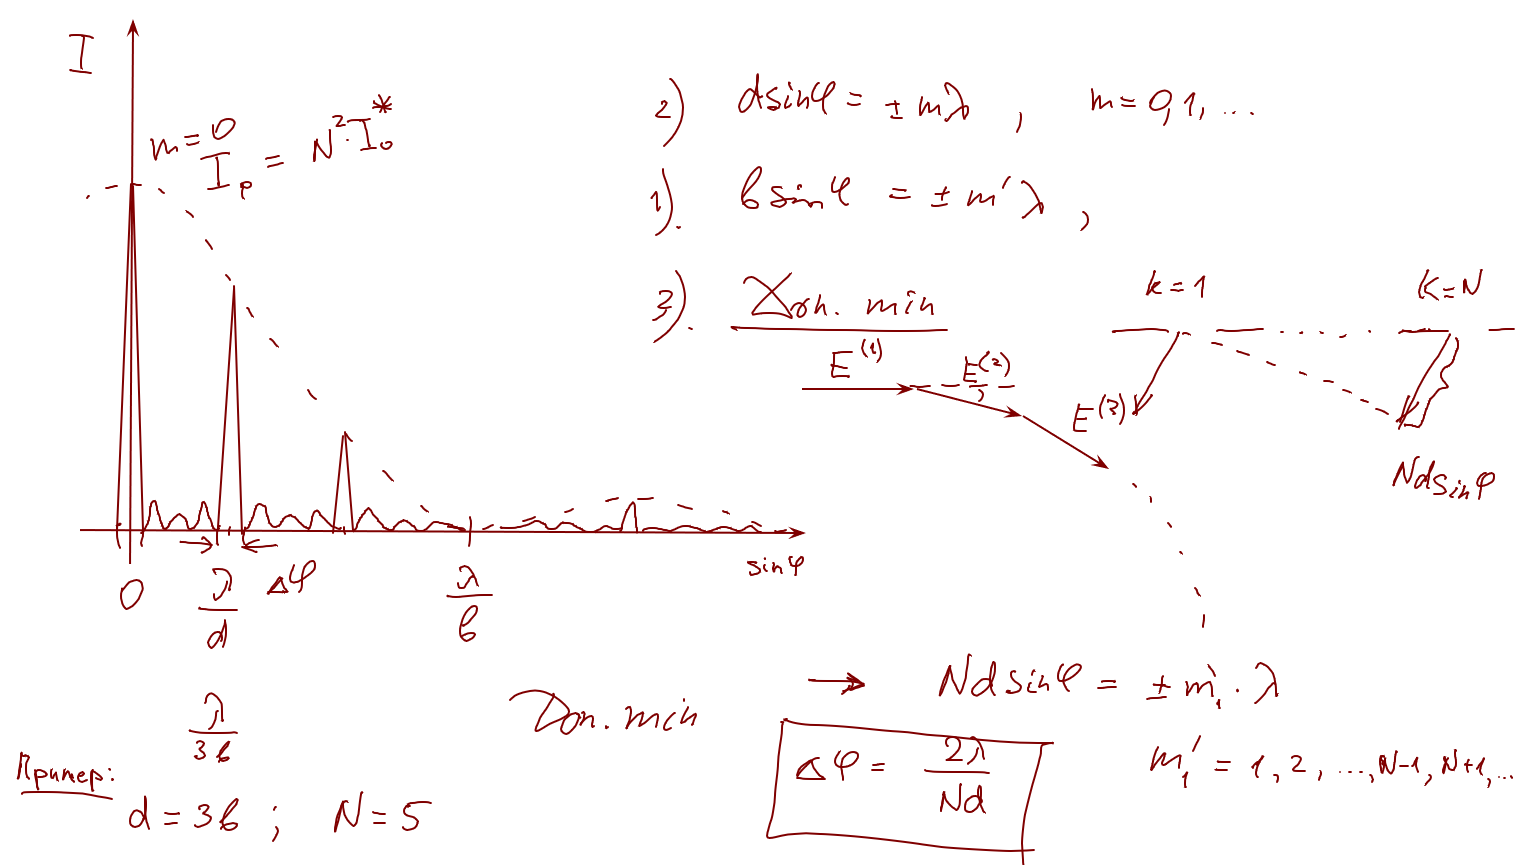 I
m=0
I_p = N²·I₀*
0
λ/d
Δφ
λ/b
sinφ
λ/3b
Пример:
d = 3b ; N = 5
2) dsinφ = ± mλ , m = 0,1,...
1). bsinφ = ± m'λ ,
3). Доп. min
E⁽¹⁾
E⁽²⁾
E⁽³⁾
k=1
K=N
Ndsinφ
Доп. min
→ Ndsinφ = ± m₁'·λ
Δφ = 2λ/Nd
m₁' = 1, 2, ..., N-1, N+1, ...